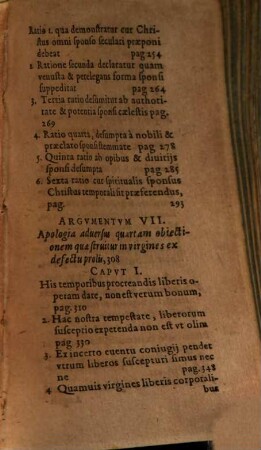 Ratio 1. qua demonstratur cur Christus
omni sponso seculari præponi
debeat pag 254
2 Ratione secunda declaratur quam
venusta & perelegans forma sponsi
suppeditat pag 264
3. Tertia ratio desumitur ab authoritate
& potentia sponsi cælestis pag.
269
4. Ratio quarta, desumpta à nobili &
præclato sponsi stemmate pag 278
5. Quinta ratio ab opibus & diuitijs
sponsi desumpta pag 285
6. Sexta ratio cur spiritualis sponsus
Christus temporali sit præferendus,
pag. 293
ARGVMENTVM VII.
Apologia aduersus quartam obiectionem
quæ struitur in virgines ex
defectu prolis, 308
CAPVT I.
His temporibus procreandis liberis operam
date, non est verum bonum,
pag. 310
2. Hac nostra tempestate, liberorum
susceptio expetenda non est vt olim
pag 330
3. Ex incerto euentu coniugij pendet
vtrum liberos suscepturi simus nec
ne pag. 348
4 Quamuis virgines liberis corporalibus